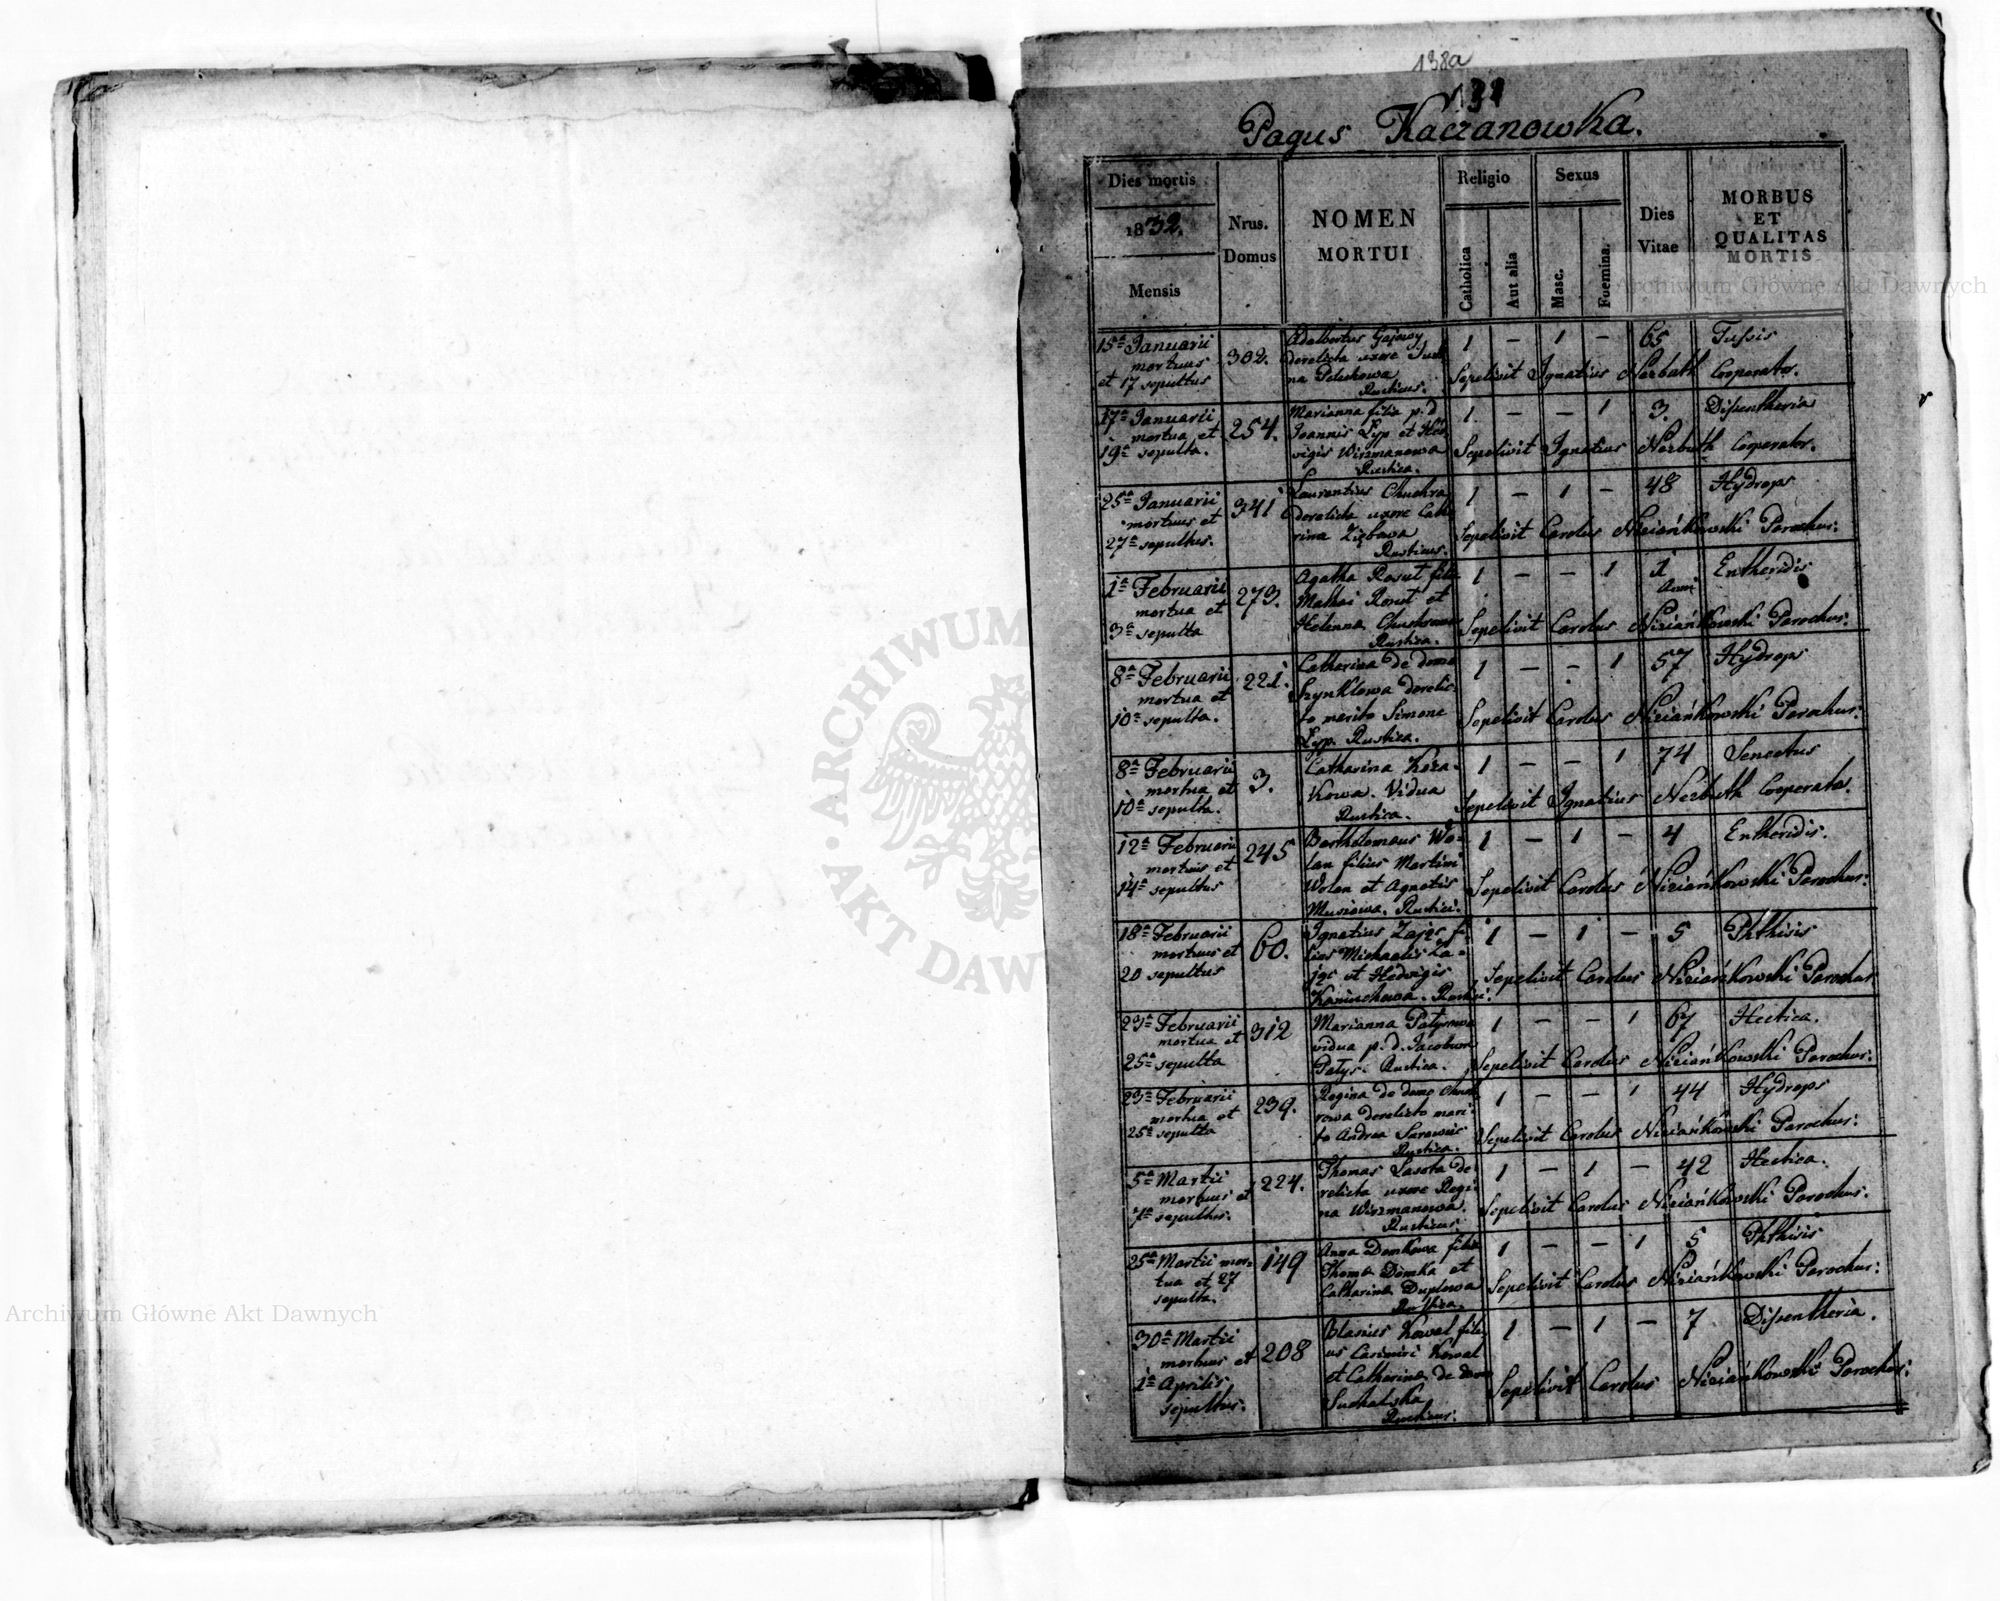 138a
131
Pagus Kaczanowka.
Dies mortis
1832.
Mensis
Nrus.
Domus
NOMEN
MORTUI
Religio
Catholica
Aut alia
Sexus
Masc.
Foemina.
Dies
Vitae
MORBUS
ET
QUALITAS
MORTIS
15ª Januarii
mortuus
et 17 sepultus
302.
Adalbertus Gajewy
derelicta uxore
na Peluchowa
Rusticus.
1 — 1 — 65 Tussis
Sepelivit Ignatius Nezbuth Cooperator.
17ª Januarii
mortua et
19ª sepulta.
254.
Marianna filia p. d.
Joannis Lyp et Hed-
vigis Wirzmanowa
Rustica.
1 — — 1 3. Dissentheria
Sepelivit Ignatius Nezbuth Cooperator.
25ª Januarii
mortuus et
27ª sepultus.
341
Laurentius Chuchra
derelicta uxore Cathe
rina Ziębowa
Rusticus.
1 — 1 — 48 Hydrops
Sepelivit Carolus Niziańkowski Parochus.
1ª Februarii
mortua et
3ª sepulta
273.
Agatha Rosut filia
Mathai Rosut et
Helenna Chuchrowa
Rustica.
1 — — 1 1 Anni Entheridis
Sepelivit Carolus Niziańkowski Parochus.
8ª Februarii
mortua et
10ª sepulta.
221.
Catharina de domo
Szynklowa derelic-
to marito Simone
Lyp. Rustica.
1 — — 1 57 Hydrops
Sepelivit Carolus Niziańkowski Parochus.
8ª Februarii
mortua et
10ª sepulta.
3.
Catharina Koza-
kowa. Vidua
Rustica.
1 — — 1 74 Senectus
Sepelivit Ignatius Nezbuth Cooperator.
12ª Februarii
mortuus et
14ª sepultus
245
Bartholomaus Wo-
lan filius Martini
Wolan et Agnetis
Musiowa. Rustici.
1 — 1 — 4 Entheridis.
Sepelivit Carolus Niziańkowski Parochus.
18ª Februarii
mortuus et
20 sepultus
60.
Ignatius Zając fi-
lius Michaelis Za-
jąc et Hedvigis
Kaniuchowa. Rustici.
1 — 1 — 5 Phthisis
Sepelivit Carolus Niziańkowski Parochus
23ª Februarii
mortua et
25ª sepulta
312
Marianna Patysowa
vidua p. d. Jacobum
Patys. Rustica.
1 — — 1 67 Hectica.
Sepelivit Carolus Niziańkowski Parochus.
23ª Februarii
mortua et
25ª sepulta
239.
Regina de domo Chuch
rowa derelicto mari-
to Andrea
Rustica.
1 — — 1 44 Hydrops
Sepelivit Carolus Niziańkowski Parochus.
5ª Martii
mortuus et
7ª sepultus.
224.
Thomas Lasota de-
relicta uxore Regi-
na Wirzmanowa.
Rusticus.
1 — 1 — 42 Hectica.
Sepelivit Carolus Niziańkowski Parochus.
25ª Martii mor-
tua et 27
sepulta.
149
Anna Domkowa filia
Thoma Domka et
Catharina Duplowa
Rustica.
1 — — 1 5 Phthisis
Sepelivit Carolus Niziańkowski Parochus.
30ª Martii
mortuus et
1ª Aprilis
sepultus.
208
Blasius Kowal fili-
us Casimiri Kowal
et Catharina de domo
Suchalska
Rusticus.
1 — 1 — 7 Dissentheria.
Sepelivit Carolus Niziańkowski Parochus.
Archiwum Główne Akt Dawnych
Archiwum Główne Akt Dawnych
ARCHIWUM
AKT DAWN